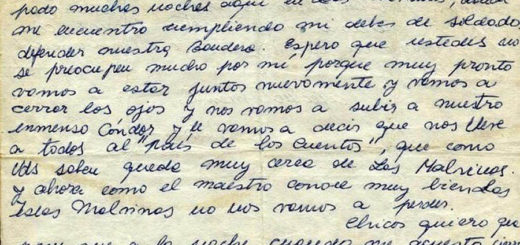 pado muchas noches aquí en
me encuentro cumpliendo mi deber de soldado:
defender nuestra Bandera. Espero que ustedes no
se preocupen mucho por mi porque muy pronto
vamos a estar juntos nuevamente y vamos a
cerrar los ojos y nos vamos a subir a nuestro
inmenso Cóndor y le vamos a decir que nos lleve
a todos al "país de los Cuentos", que como
Uds saben queda muy cerca de Las Malvinas.
y ahora como el maestro conoce muy bien las
islas Malvinas no nos vamos a perder.
Chicos quiero que
a la noche cuando me acuesto